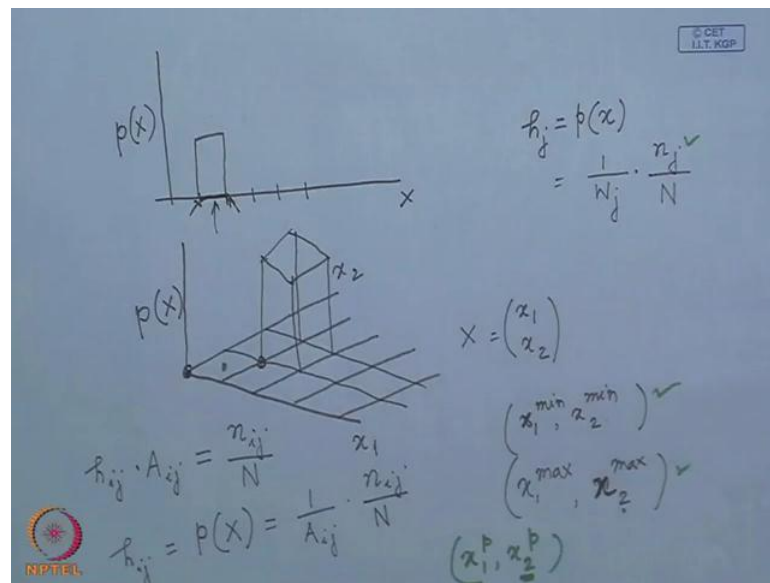 © CET
I.I.T. KGP
p(x)
x
h_j = p(x)
= 1/W_j · n_j/N ✓
p(x)
x_2
x_1
X = (x_1 x_2)
(x_1^min, x_2^min) ✓
(x_1^max, x_2^max) ✓
h_ij · A_ij = n_ij/N
h_ij = p(X) = 1/A_ij · n_ij/N
(x_1^p, x_2^p)
NPTEL